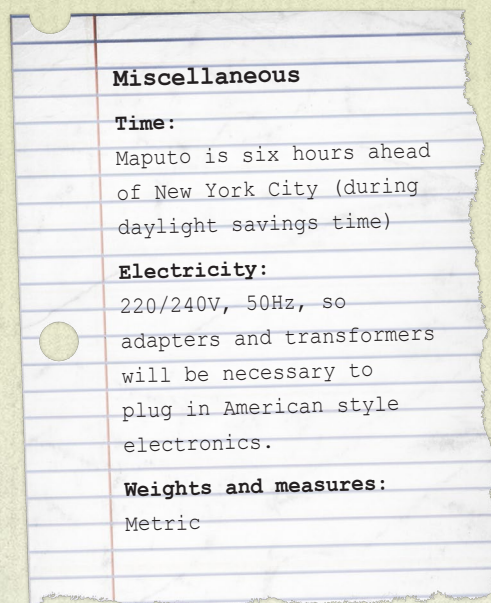 Miscellaneous
Time:
Maputo is six hours ahead
of New York City (during
daylight savings time)
Electricity:
220/240V, 50Hz, so
adapters and transformers
will be necessary to
plug in American style
electronics.
Weights and measures:
Metric